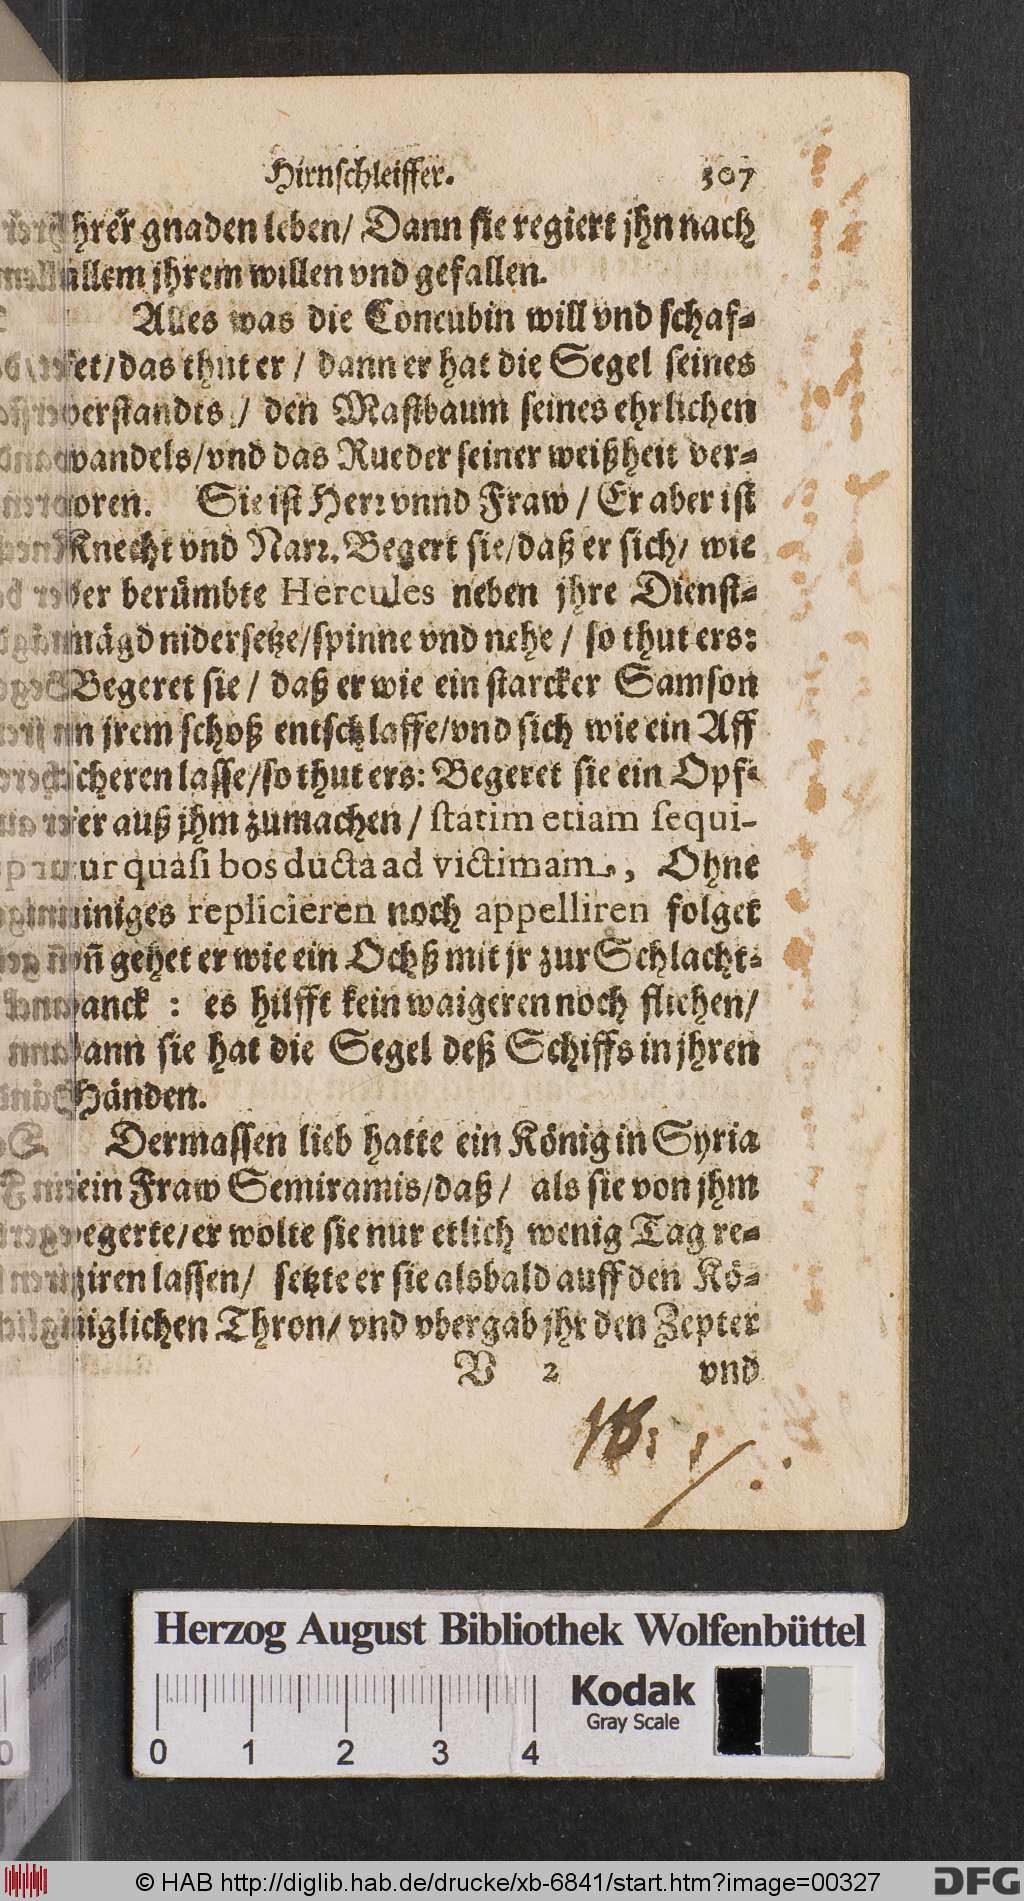 Hirnschleiffer. 307
jhrer gnaden leben/ Dann sie regiert jhn nach
allem jhrem willen vnd gefallen.
Alles was die Concubin will vnd schaf-
fet/das thut er / dann er hat die Segel seines
verstandts / den Mastbaum seines ehrlichen
wandels/vnd das Rueder seiner weißheit ver-
loren. Sie ist Herr vnnd Fraw / Er aber ist
Knecht vnd Narr. Begert sie/daß er sich/ wie
der berümbte Hercules neben jhre Dienst-
mägd nidersetze/spinne vnd nehe / so thut ers:
Begeret sie / daß er wie ein starcker Samson
in jrem schoß entschlaffe/vnd sich wie ein Aff
scheren lasse/so thut ers: Begeret sie ein Opf-
fer auß jhm zumachen / statim etiam sequi-
tur quasi bos ducta ad victimam, Ohne
einiges replicieren noch appelliren folget
vñ gehet er wie ein Ochß mit jr zur Schlacht-
banck : es hilfft kein waigeren noch fliehen/
dann sie hat die Segel deß Schiffs in jhren
Händen.
Dermassen lieb hatte ein König in Syria
sein Fraw Semiramis/daß/ als sie von jhm
begerte/er wolte sie nur etlich wenig Tag re-
giren lassen/ setzte er sie alsbald auff den Kö-
niglichen Thron/ vnd vbergab jhr den Zepter
V 2 vnd
Herzog August Bibliothek Wolfenbüttel
Kodak
Gray Scale
0 1 2 3 4
© HAB http://diglib.hab.de/drucke/xb-6841/start.htm?image=00327
DFG